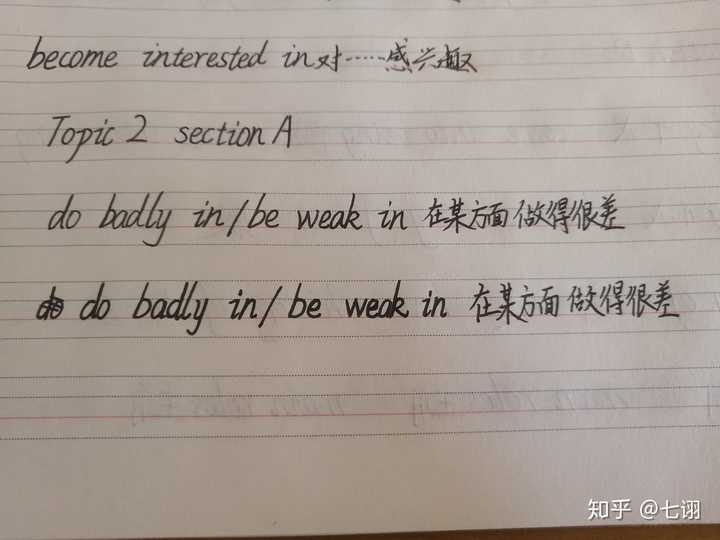 become interested in 对……感兴趣
Topic 2 section A
do badly in/be weak in 在某方面做得很差
do badly in/be weak in 在某方面做得很差
知乎 @七诩